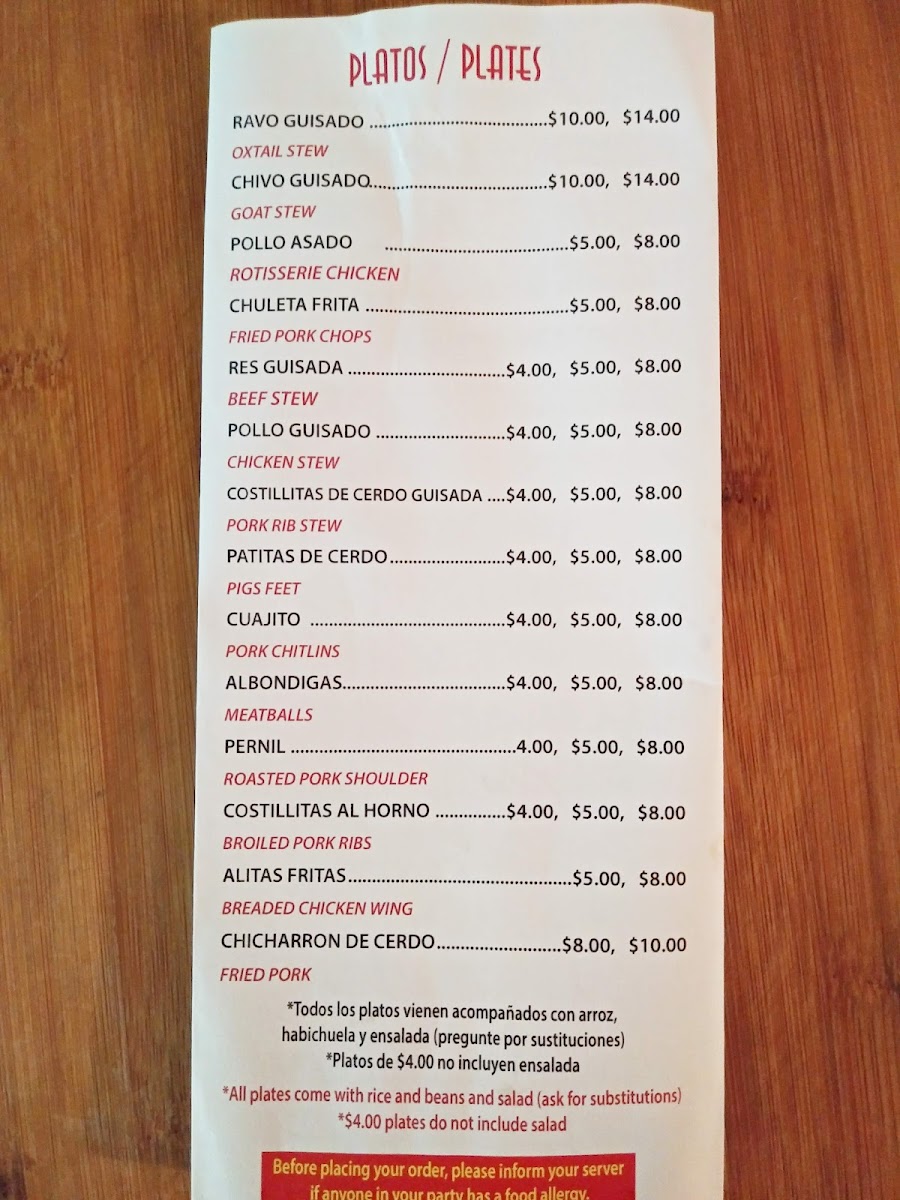 PLATOS / PLATES
RAVO GUISADO ......................................$10.00, $14.00
OXTAIL STEW
CHIVO GUISADO......................................$10.00, $14.00
GOAT STEW
POLLO ASADO .......................................$5.00, $8.00
ROTISSERIE CHICKEN
CHULETA FRITA ...........................................$5.00, $8.00
FRIED PORK CHOPS
RES GUISADA .................................$4.00, $5.00, $8.00
BEEF STEW
POLLO GUISADO ...........................$4.00, $5.00, $8.00
CHICKEN STEW
COSTILLITAS DE CERDO GUISADA ....$4.00, $5.00, $8.00
PORK RIB STEW
PATITAS DE CERDO.........................$4.00, $5.00, $8.00
PIGS FEET
CUAJITO .........................................$4.00, $5.00, $8.00
PORK CHITLINS
ALBONDIGAS...................................$4.00, $5.00, $8.00
MEATBALLS
PERNIL ................................................4.00, $5.00, $8.00
ROASTED PORK SHOULDER
COSTILLITAS AL HORNO ...............$4.00, $5.00, $8.00
BROILED PORK RIBS
ALITAS FRITAS...............................................$5.00, $8.00
BREADED CHICKEN WING
CHICHARRON DE CERDO..........................$8.00, $10.00
FRIED PORK
*Todos los platos vienen acompañados con arroz,
habichuela y ensalada (pregunte por sustituciones)
*Platos de $4.00 no incluyen ensalada
*All plates come with rice and beans and salad (ask for substitutions)
*$4.00 plates do not include salad
Before placing your order, please inform your server
if anyone in your party has a food allergy.